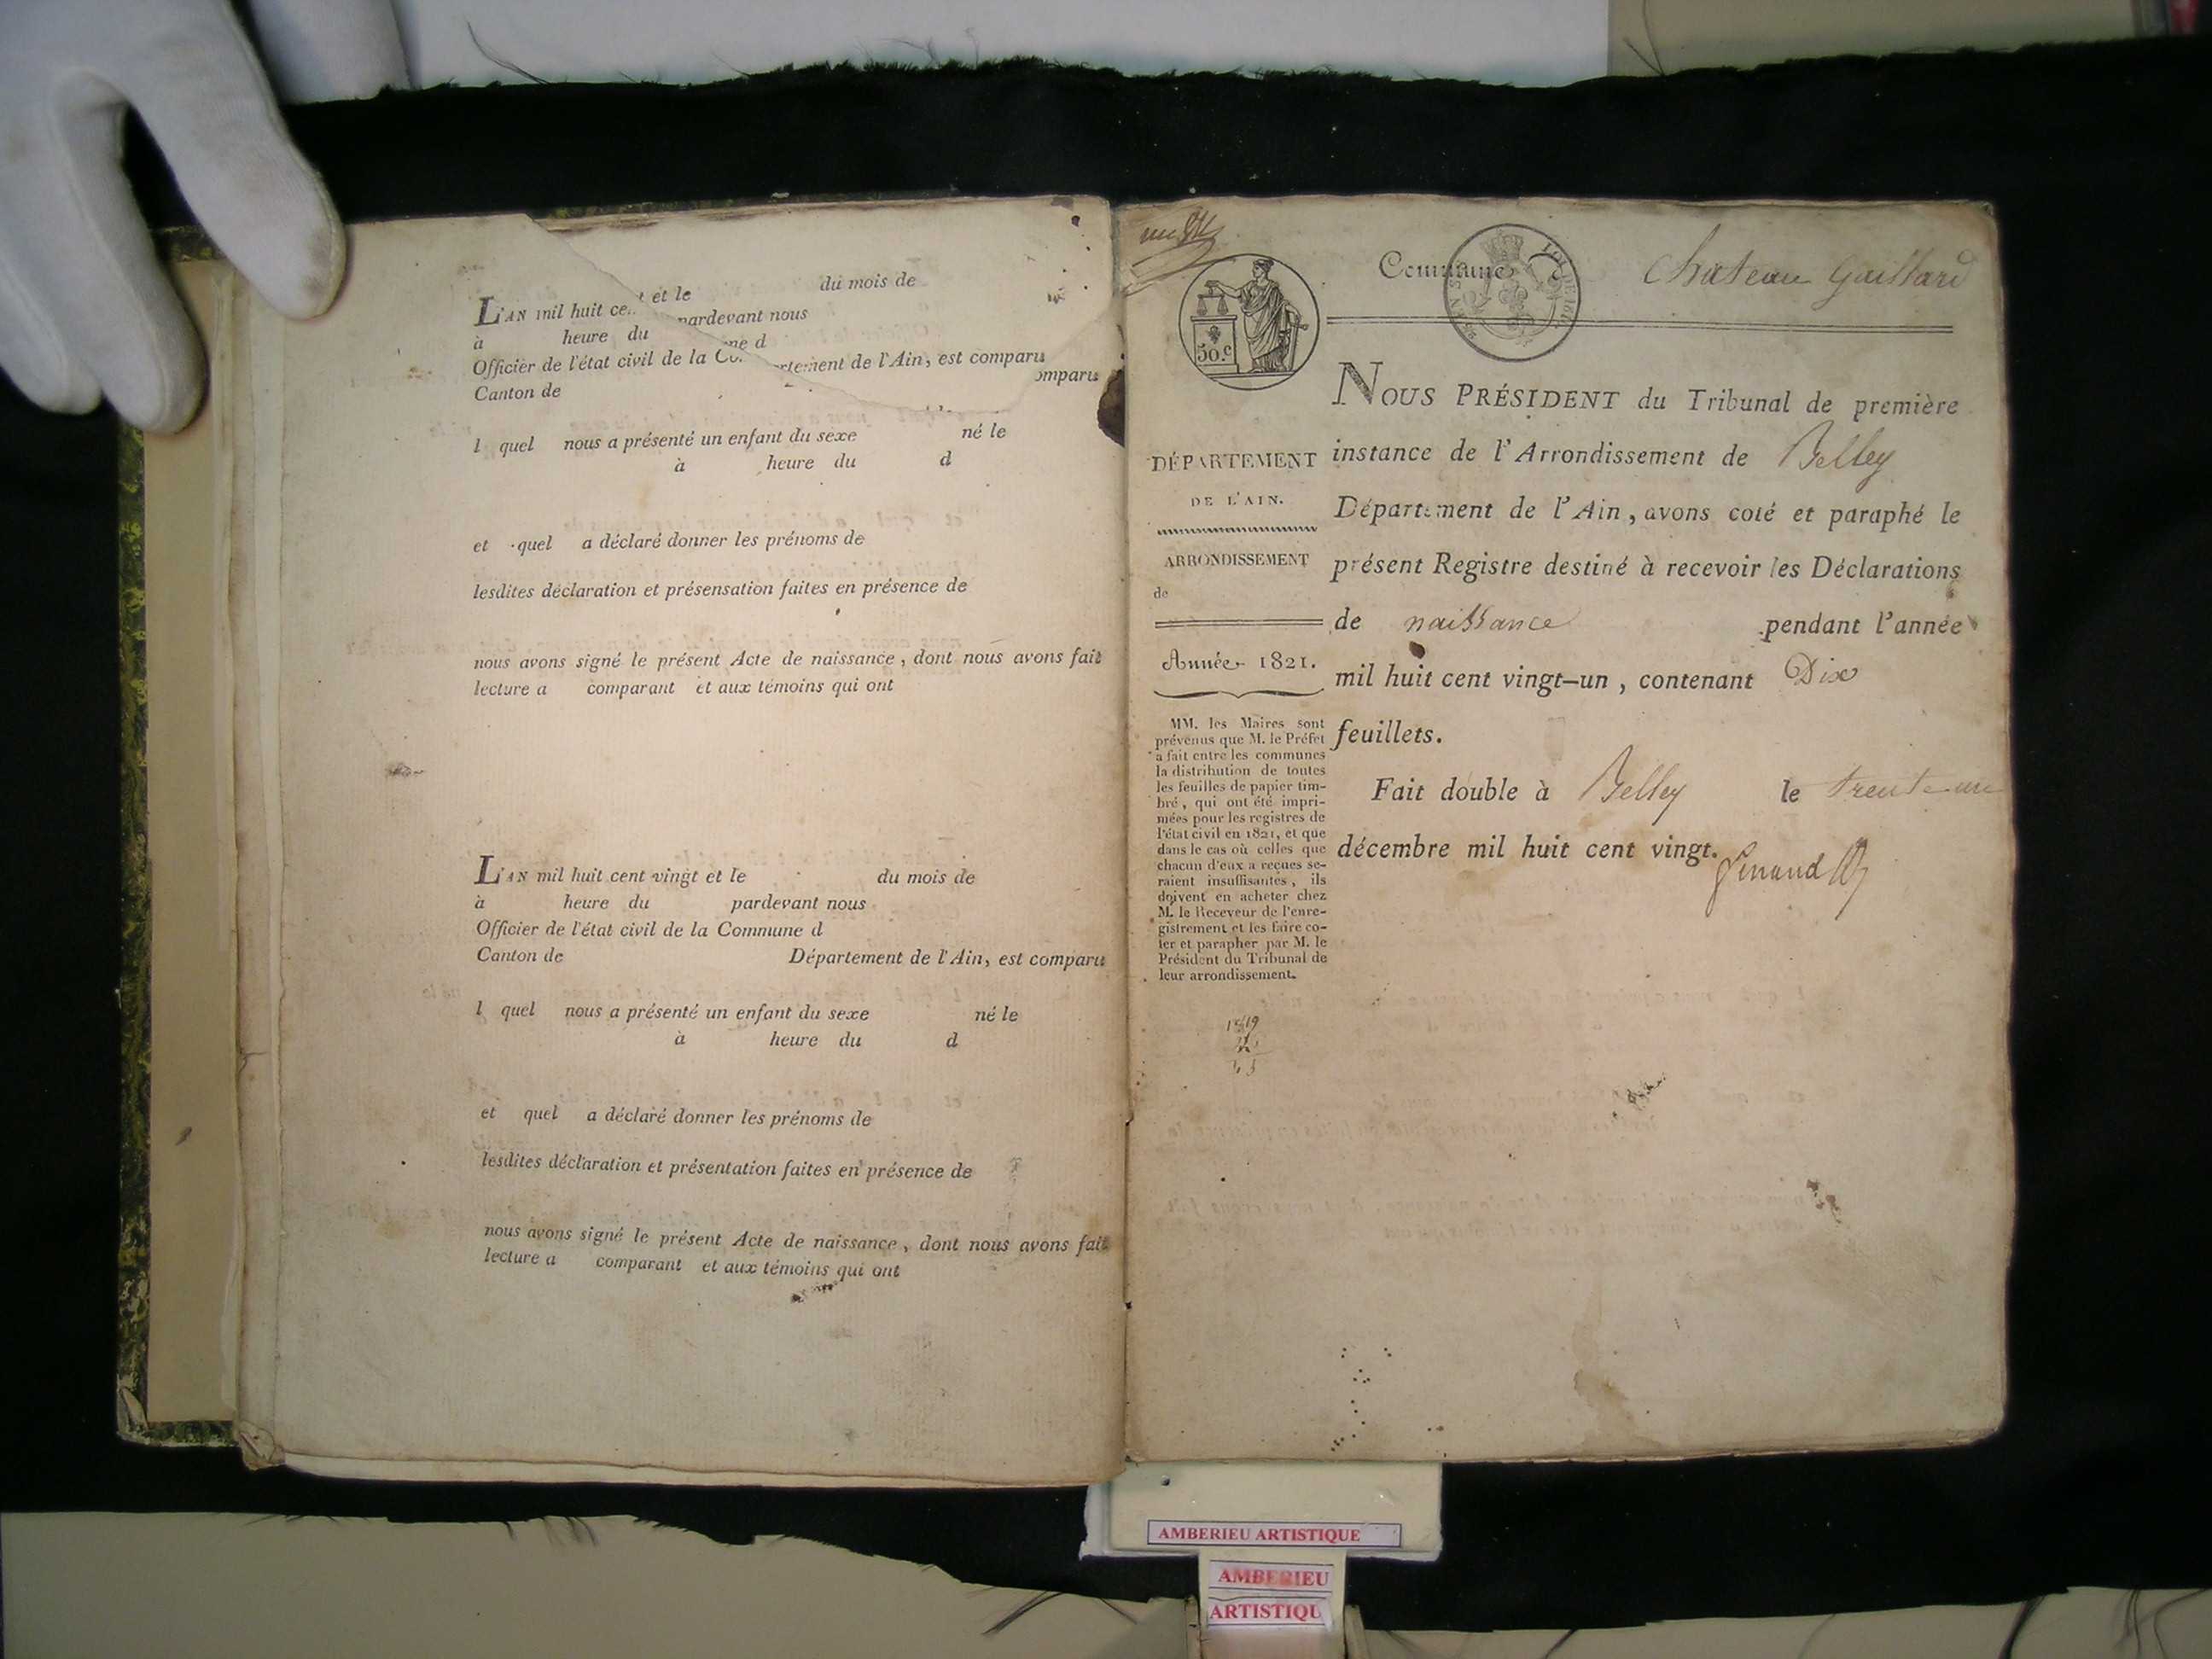 L'AN mil huit ce
t et le
du mois de
à heure du
pardevant nous
Officier de l'état civil de la Co
ne d
Canton de
rtement de l'Ain, est comparu
omparu
l quel nous a présenté un enfant du sexe né le
à heure du d
et quel a déclaré donner les prénoms de
lesdites déclaration et présensation faites en présence de
nous avons signé le présent Acte de naissance, dont nous avons fait
lecture a comparant et aux témoins qui ont
L'AN mil huit cent vingt et le du mois de
à heure du pardevant nous
Officier de l'état civil de la Commune d
Canton de Département de l'Ain, est comparu
l quel nous a présenté un enfant du sexe né le
à heure du d
et quel a déclaré donner les prénoms de
lesdites déclaration et présentation faites en présence de
nous avons signé le présent Acte de naissance, dont nous avons fait
lecture a comparant et aux témoins qui ont
un
50.c
Commune Chateau Gaillard
DÉPARTEMENT
DE L'AIN.
ARRONDISSEMENT
de
Année 1821.
MM. les Maires sont
prévenus que M. le Préfet
a fait entre les communes
la distribution de toutes
les feuilles de papier tim-
bré, qui ont été impri-
mées pour les registres de
l'état civil en 1821, et que
dans le cas où celles que
chacun d'eux a reçues se-
raient insuffisantes, ils
doivent en acheter chez
M. le Receveur de l'enre-
gistrement et les faire co-
ter et parapher par M. le
Président du Tribunal de
leur arrondissement.
NOUS PRÉSIDENT du Tribunal de première
instance de l'Arrondissement de Belley
Département de l'Ain, avons coté et paraphé le
présent Registre destiné à recevoir les Déclarations
de naissance pendant l'année
mil huit cent vingt-un, contenant Dix
feuillets.
Fait double à Belley le trente un
décembre mil huit cent vingt.
AMBERIEU ARTISTIQUE
AMBERIEU
ARTISTIQU